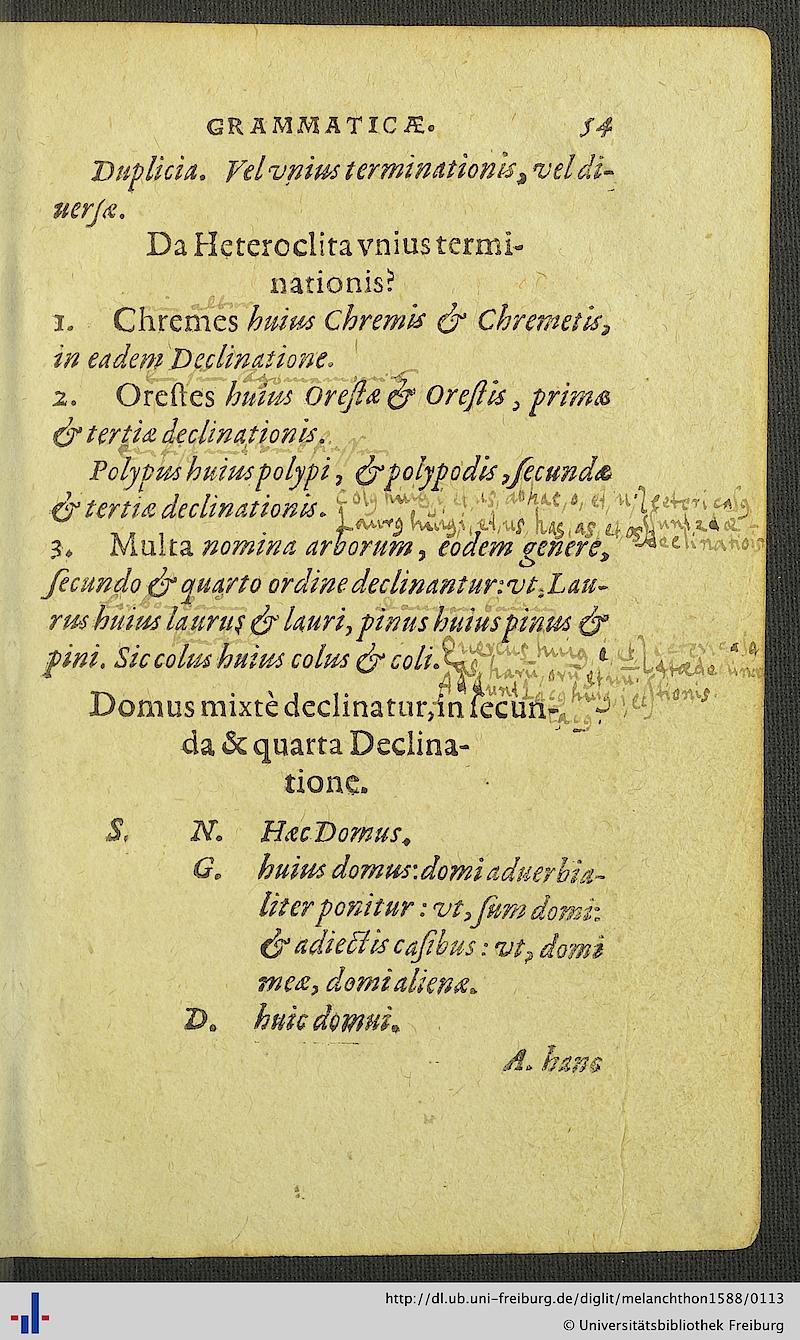 GRAMMATICÆ. 54
Duplicia. Vel vnius terminationis, vel di-
uersæ.
Da Heteroclita vnius termi-
nationis?
1. Chremes huius Chremis & Chremetis,
in eadem Declinatione.
2. Orestes huius Orestæ & Orestis, primæ
& tertiæ declinationis.
Polypus huius polypi, & polypodis, secundæ
& tertiæ declinationis.
3. Multa nomina arborum, eodem genere,
secundo & quarto ordine declinantur: vt, Lau-
rus huius laurus & lauri, pinus huius pinus &
pini. Sic colus huius colus & coli.
Domus mixtè declinatur, in secun-
da & quarta Declina-
tione.
S. N. Hæc Domus.
G. huius domus: domi aduerbia-
liter ponitur: vt, sum domi:
& adiectis casibus: vt, domi
meæ, domi alienæ.
D. huic domui.
A. hanc
http://dl.ub.uni-freiburg.de/diglit/melanchthon1588/0113
© Universitätsbibliothek Freiburg